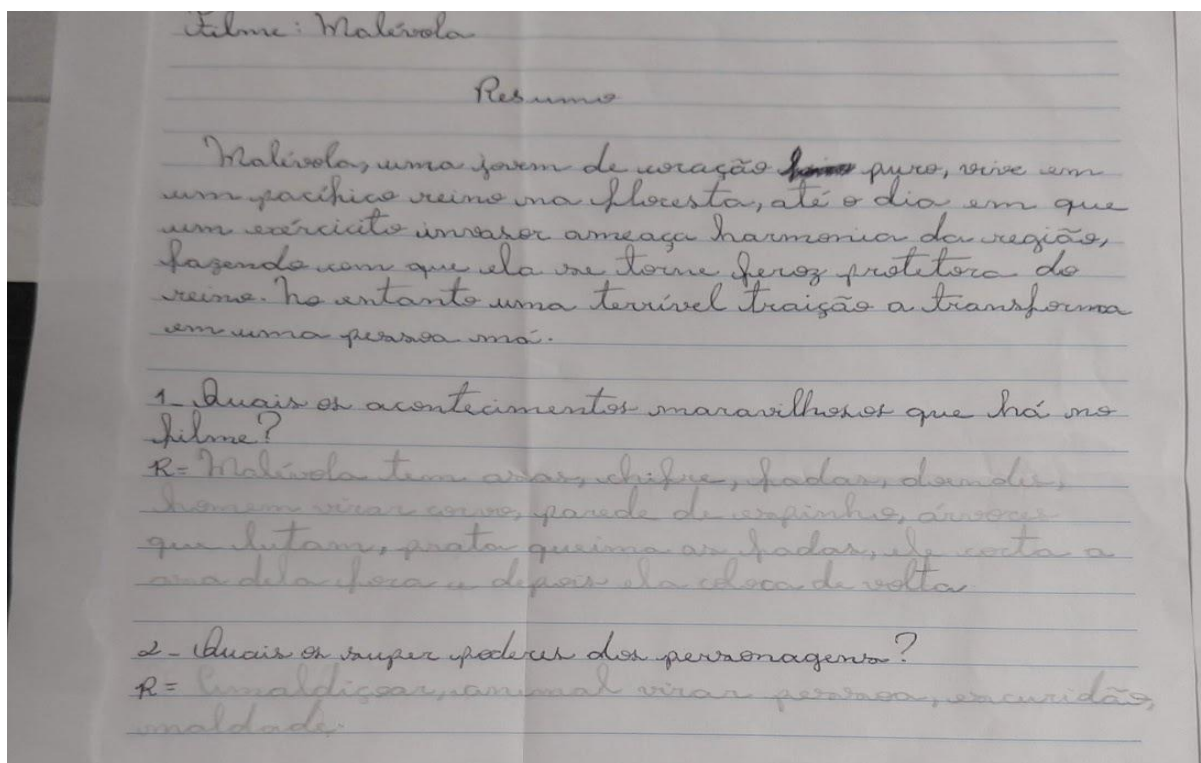 Filme: Malévola
Resumo
Malévola, uma jovem de coração puro, vive em
um pacífico reino na floresta, até o dia em que
um exérciato invasor ameaça harmonia da região,
fazendo com que ela se torne feroz protetora do
reino. No entanto uma terrível traição a transforma
em uma pessoa má.
1- Quais os acontecimentos maravilhosos que há no
filme?
R= Malévola tem asas, chifre, fadas, duendes,
homem virar corvo, parede de espinho, árvores
que lutam, prata queima as fadas, ele corta a
asa dela fora e depois ela coloca de volta
2- Quais os super poderes dos personagens?
R= Amaldiçoar, animal virar pessoa, escuridão,
maldade.